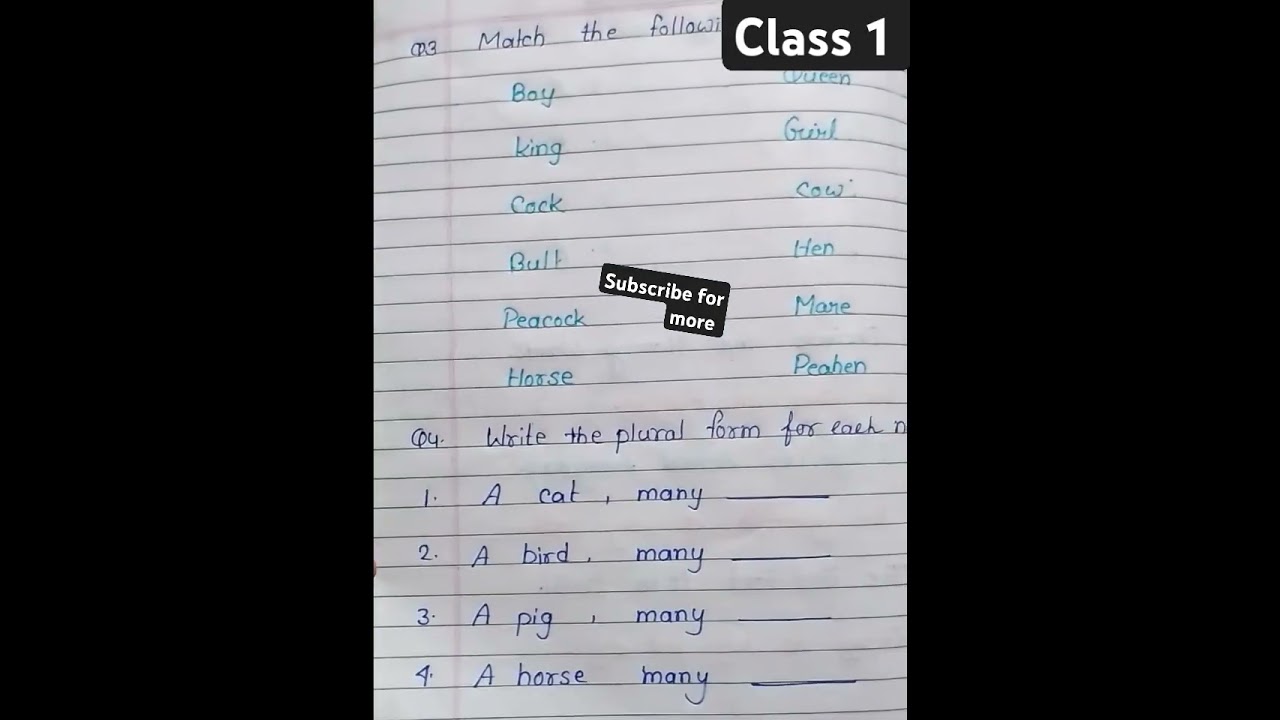 Class 1
Q3 Match the followi
Boy Queen
King Girl
Cock Cow
Bull Hen
Subscribe for
more
Peacock Mare
Horse Peahen
Q4. Write the plural form for each n
1. A cat, many
2. A bird, many
3. A pig, many
4. A horse many